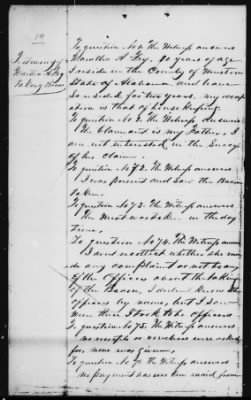 19
Testimony of
Martha A Fry
taking Bacon
To question No 1 the Witness answers
Martha A. Fry. 30 years of age
I reside in the County of Winston
State of Alabama and have
so resided for two years, my occup
ation is that of house Keeping
To question No 2. The Witness answers
The Claimant is my Father, I
am not interested in the success
of his claim.
To question No 72. The Witness answers
I was present and saw the Bacon
taken.
To question No 73. The Witness answers
The Meat was taken in the day
time.
To question No 74. The Witness answers
I do not recollect whether she ma
de any complaint or not to any
of the Officers about the taking
of the Bacon, I dident know the
officers by name, but I saw
men there I took to be officers
To question No 75. The Witness answers
no receipt or vouchers were asked
for, none was given.
To question No 76 The Witness answers
no payment has ever been